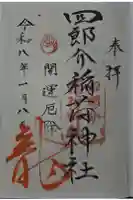 奉拝
四郎介稲荷神社
開運厄除
令和八年一月八